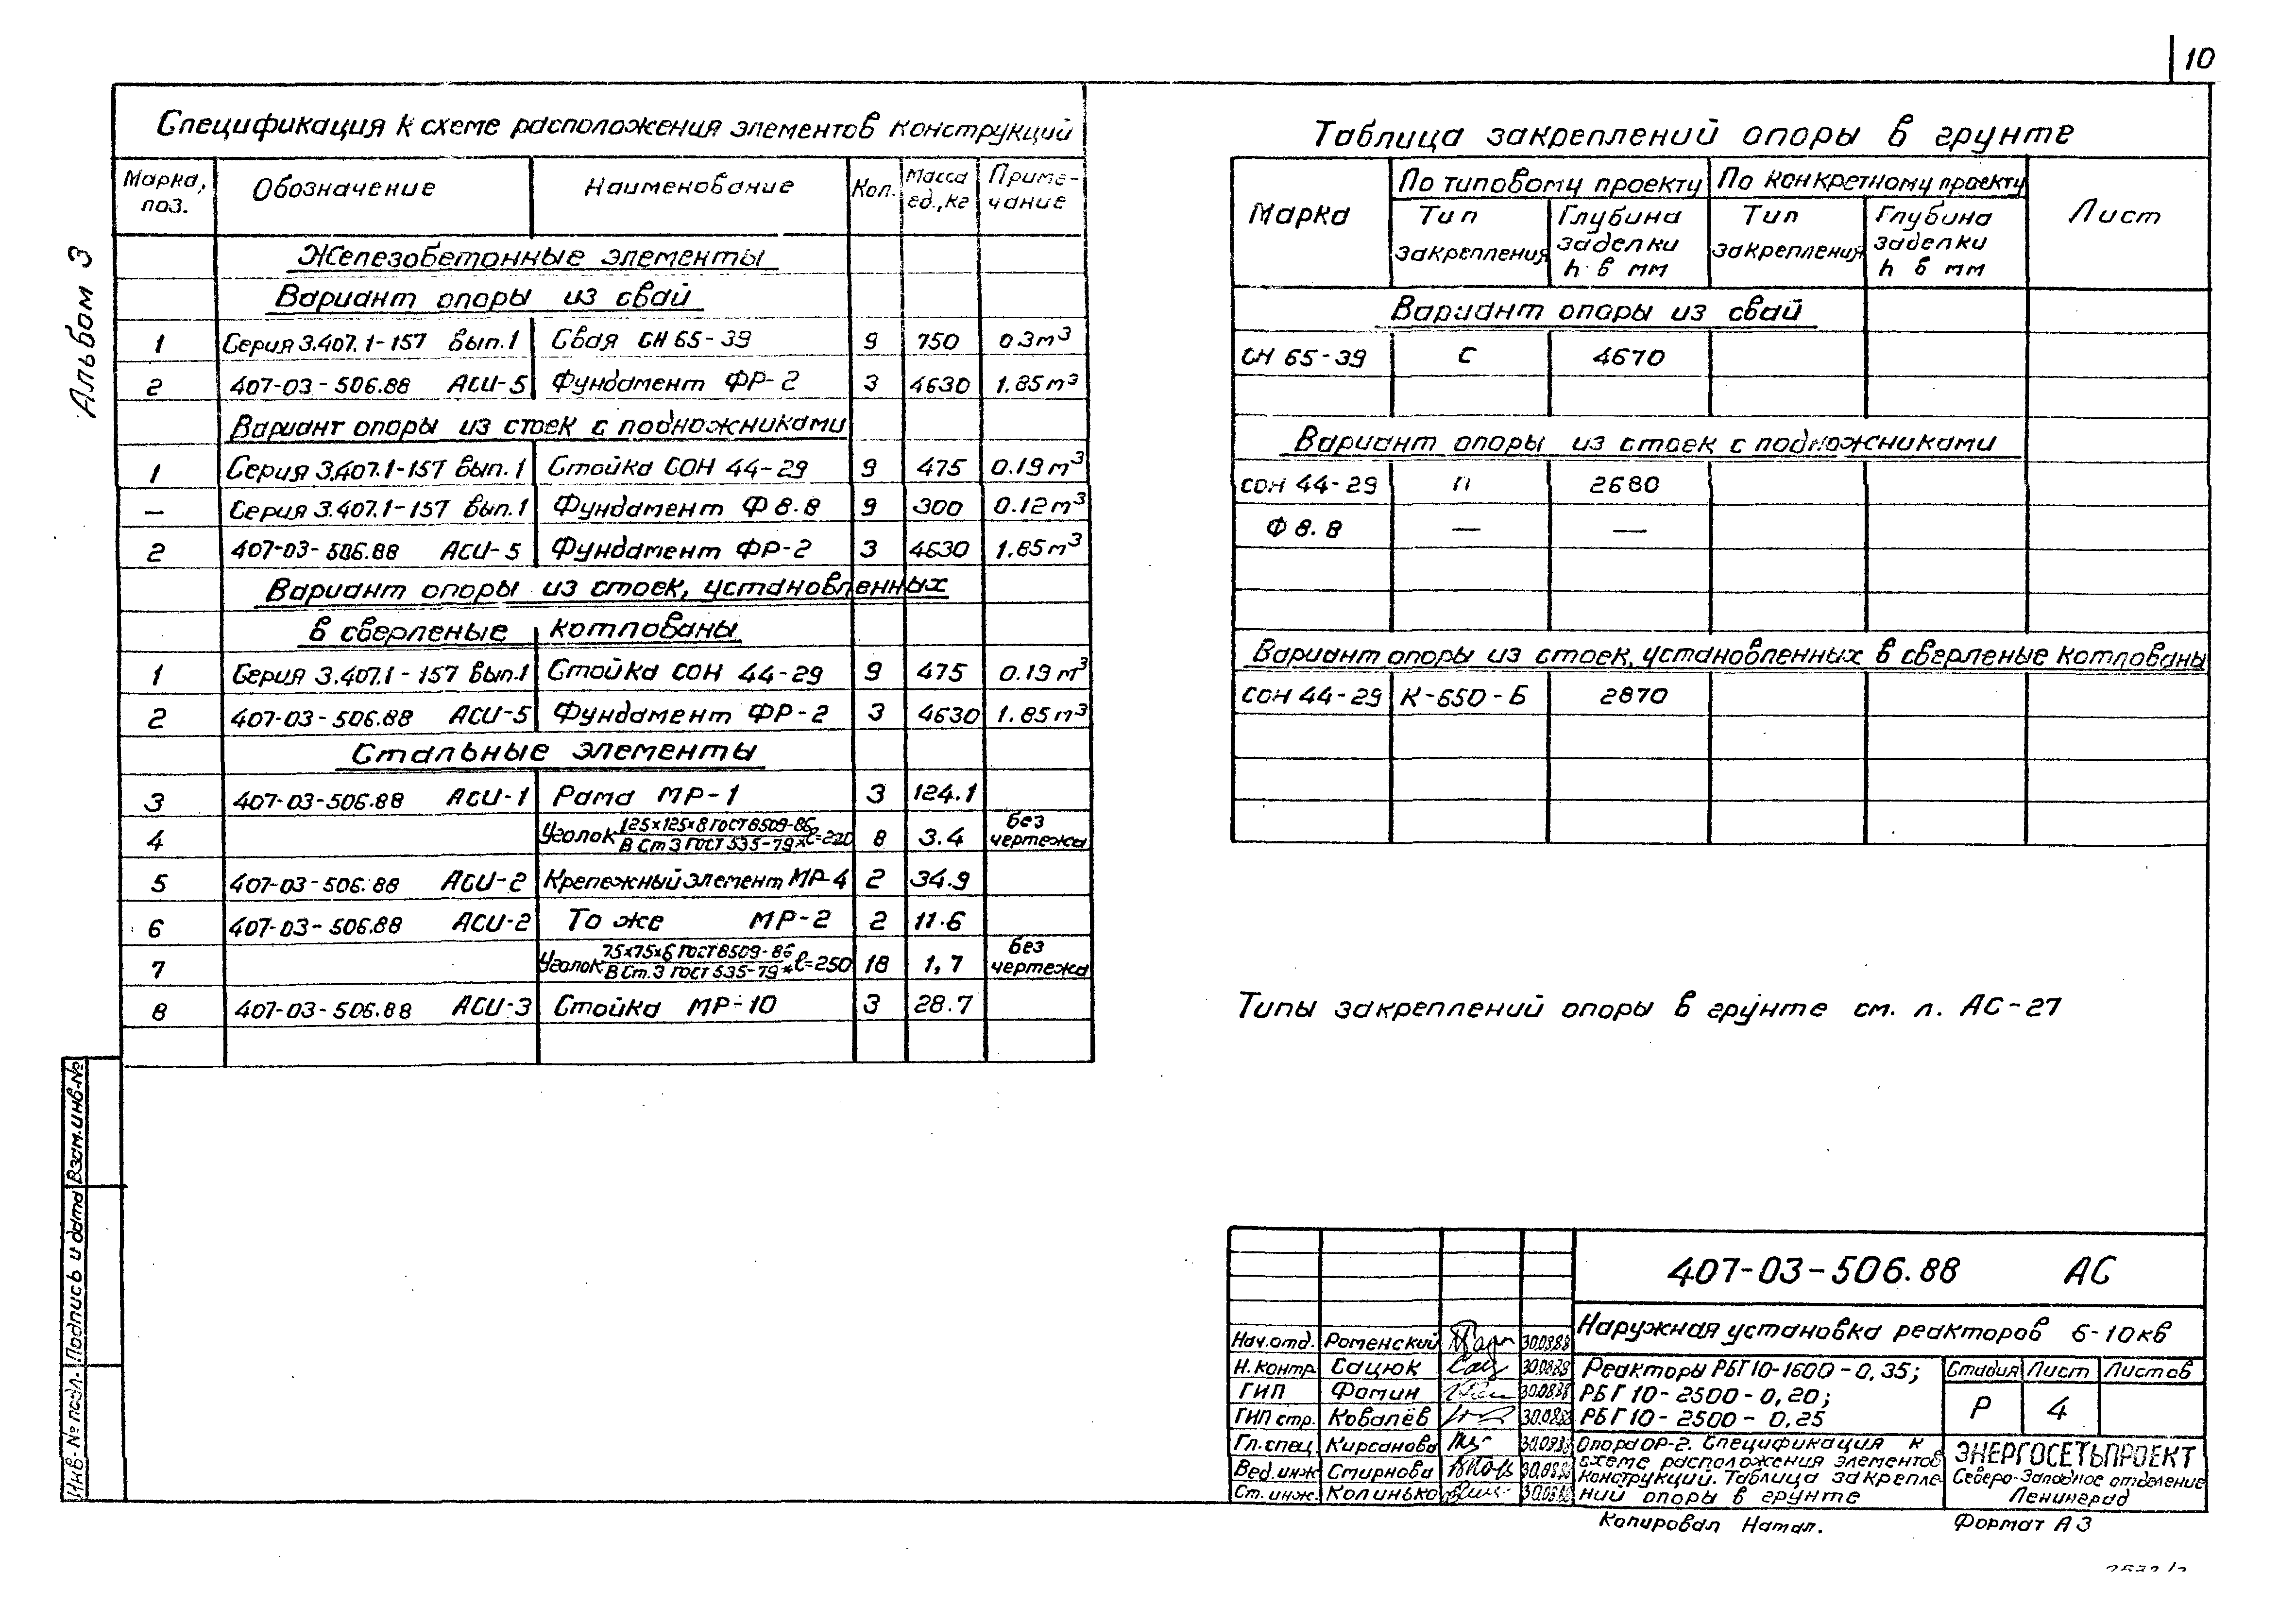 10
Альбом 3
Спецификация к схеме расположения элементов конструкций
Марка, поз. Обозначение Наименование Кол. Масса ед., кг Примечание
Железобетонные элементы
Вариант опоры из свай
1 Серия 3.407.1-157 вып.1 Свая СН 65-39 9 750 0.3 м³
2 407-03-506.88 АСИ-5 Фундамент ФР-2 3 4630 1.85 м³
Вариант опоры из стоек с подножниками
1 Серия 3.407.1-157 вып.1 Стойка СОН 44-29 9 475 0.19 м³
— Серия 3.407.1-157 вып.1 Фундамент Ф 8.8 9 300 0.12 м³
2 407-03-506.88 АСИ-5 Фундамент ФР-2 3 4630 1.85 м³
Вариант опоры из стоек, установленных
в сверленые котлованы
1 Серия 3.407.1-157 вып.1 Стойка СОН 44-29 9 475 0.19 м³
2 407-03-506.88 АСИ-5 Фундамент ФР-2 3 4630 1.85 м³
Стальные элементы
3 407-03-506.88 АСИ-1 Рама МР-1 3 124.1
4 Уголок 125×125×8 ГОСТ 8509-86 / В Ст 3 ГОСТ 535-79* ℓ=220 8 3.4 без чертежа
5 407-03-506.88 АСИ-2 Крепежный элемент МР-4 2 34.9
6 407-03-506.88 АСИ-2 То же МР-2 2 11.6
7 Уголок 75×75×6 ГОСТ 8509-86 / В Ст.3 ГОСТ 535-79* ℓ=250 18 1,7 без чертежа
8 407-03-506.88 АСИ-3 Стойка МР-10 3 28.7
Таблица закреплений опоры в грунте
Марка По типовому проекту По конкретному проекту Лист
Тип закрепления Глубина заделки h в мм Тип закрепления Глубина заделки h в мм
Вариант опоры из свай
СН 65-39 С 4670
Вариант опоры из стоек с подножниками
СОН 44-29 П 2680
Ф 8.8 — —
Вариант опоры из стоек, установленных в сверленые котлованы
СОН 44-29 К-650-Б 2870
Типы закреплений опоры в грунте см. л. АС-27
Взам.инв.№
Подпись и дата
Инв.№ подл.
407-03-506.88 АС
Наружная установка реакторов 6-10кв
Нач.отд. Роменский 30.08.88
Н. контр. Сацюк 30.08.88
ГИП Фомин 30.08.88
ГИП стр. Ковалёв 30.08.88
Гл.спец. Кирсанова 30.08.88
Вед.инж. Смирнова 30.08.88
Ст. инж. Колинько 30.08.88
Реакторы РБГ10-1600-0,35;
РБГ 10-2500-0,20;
РБГ10-2500-0,25
Стадия Лист Листов
Р 4
Опора ОР-2. Спецификация к
схеме расположения элементов
конструкций. Таблица закрепле-
ний опоры в грунте
ЭНЕРГОСЕТЬПРОЕКТ
Северо-Западное отделение
Ленинград
Копировал Натал.
Формат А3